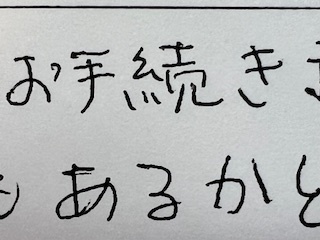 お手続き
もあるかと